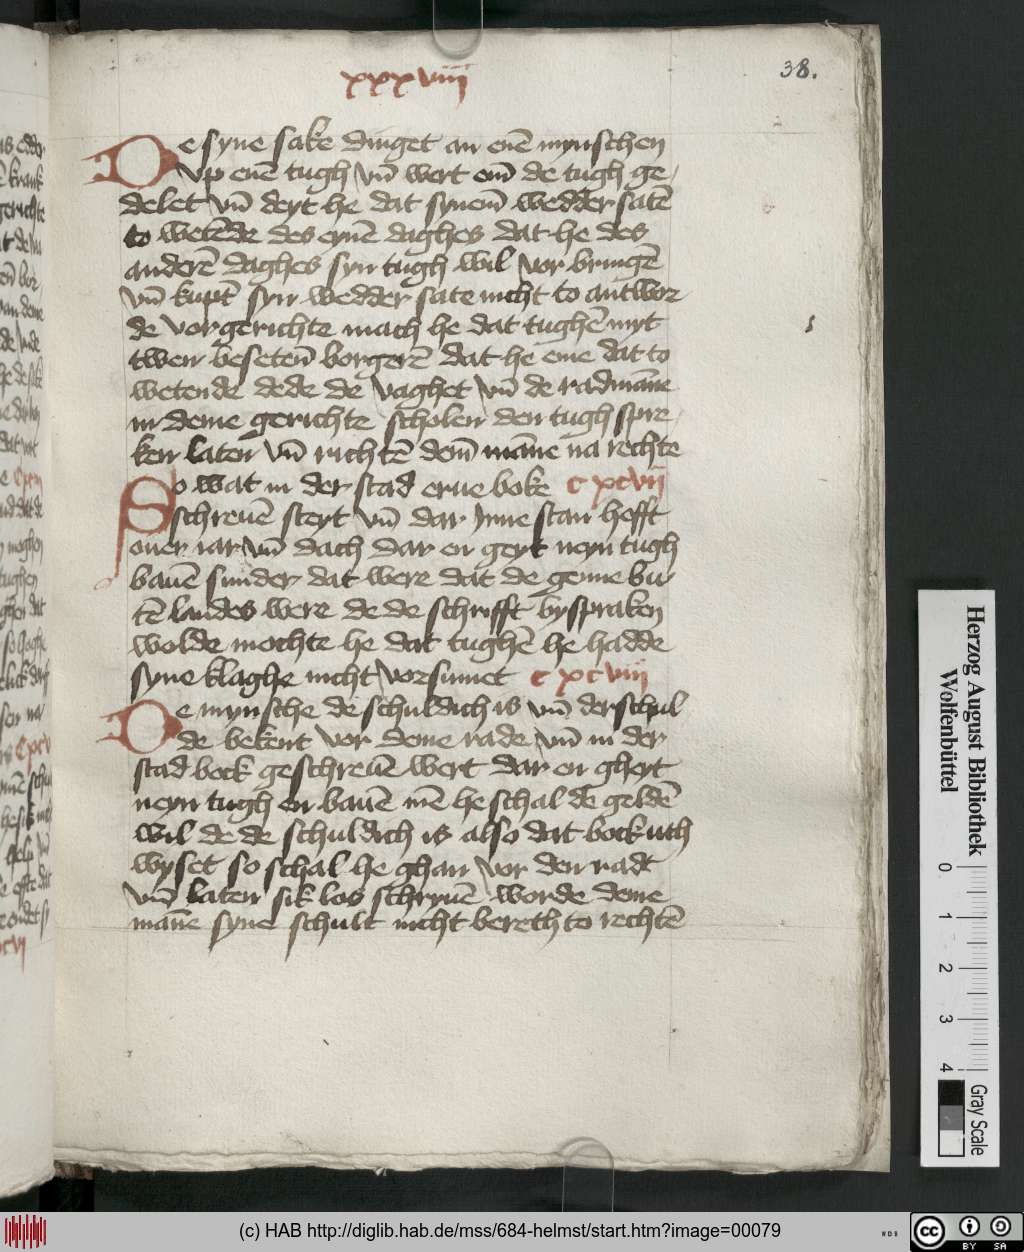 xxxviij
38.
De syne sake dinget an enē mynschen
vp enē tugh vn̄ wert em̄ de tugh ge
delet vn̄ deyt he dat synem̄ wedder satē
to wetēde des eynē daghes dat he des
anderē daghes syn tugh wil vor bringē
vn̄ kupt syn wedder sate nicht to antwor
de vor gerichte mach he dat tughē myt
twen beseten̄ borgerē dat he eme dat to
wetende dede de vaghet vn̄ de radmāne
in deme gerichte scholen den tugh spre
ken laten vn̄ richtē dem̄ māne na rechte
So wat in der stad erue boke c xcvij
schreuē steyt vn̄ dar Inne stan hefft
ouer iar vn̄ dach dar en geyt neyn tugh
bauē sunder dat were dat de genne bu
tē landes were de de schrifft byspraken
wolde mochte he dat tughē he hadde
syne klaghe nicht vorsumet c xcviij
De mynsche de schuldich is vn̄ der schul
de bekent vor deme rade vn̄ in der
stad bock geschreuē wert dar en gheyt
neyn tugh en bauē mē he schal de geldē
wil de de schuldich is also dat bock uth
wyset so schal he ghan vor den radt
vn̄ laten sik los schryuē worde deme
māne syne schult nicht bereth to rechtē
Herzog August Bibliothek
Wolfenbüttel
0 1 2 3 4
Gray Scale
(c) HAB http://diglib.hab.de/mss/684-helmst/start.htm?image=00079
cc BY SA